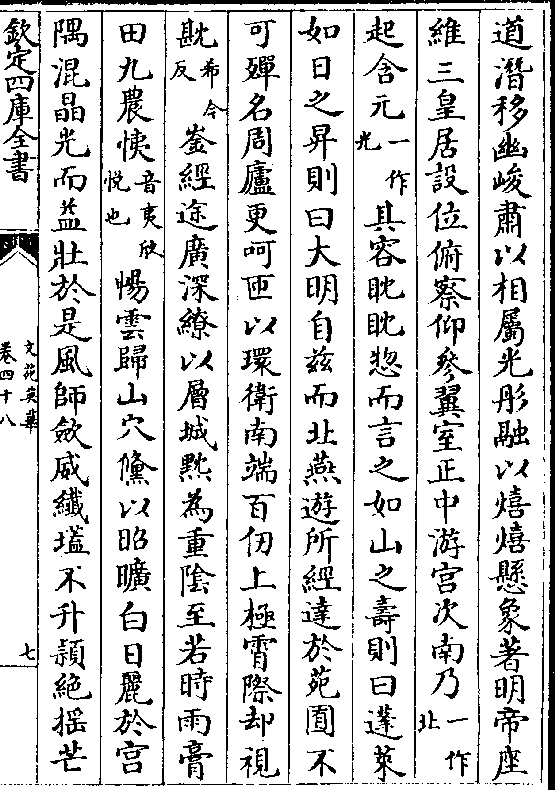 道潛移幽峻肅以相屬光彤融以熺熺懸象著明帝座
維三皇居設位俯察仰參翼室正中游宫次南乃一作北
起含元一作光具容眈眈惣而言之如山之壽則曰蓬萊
如日之昇則曰大明自兹而北燕遊所經達於苑囿不
可殫名周廬更呵匝以環衛南端百仞上極霄際却視
戡希令反崟經途廣深繚以層城黕為重陰至若時雨膏
田九農恞音夷欣悅也惕雲歸山穴儻以昭曠白日麗於宫
隅混晶光而益壯於是風師斂威纎壒不升頴絶揺芒
欽定四庫全書
文苑英華
卷四十八
七